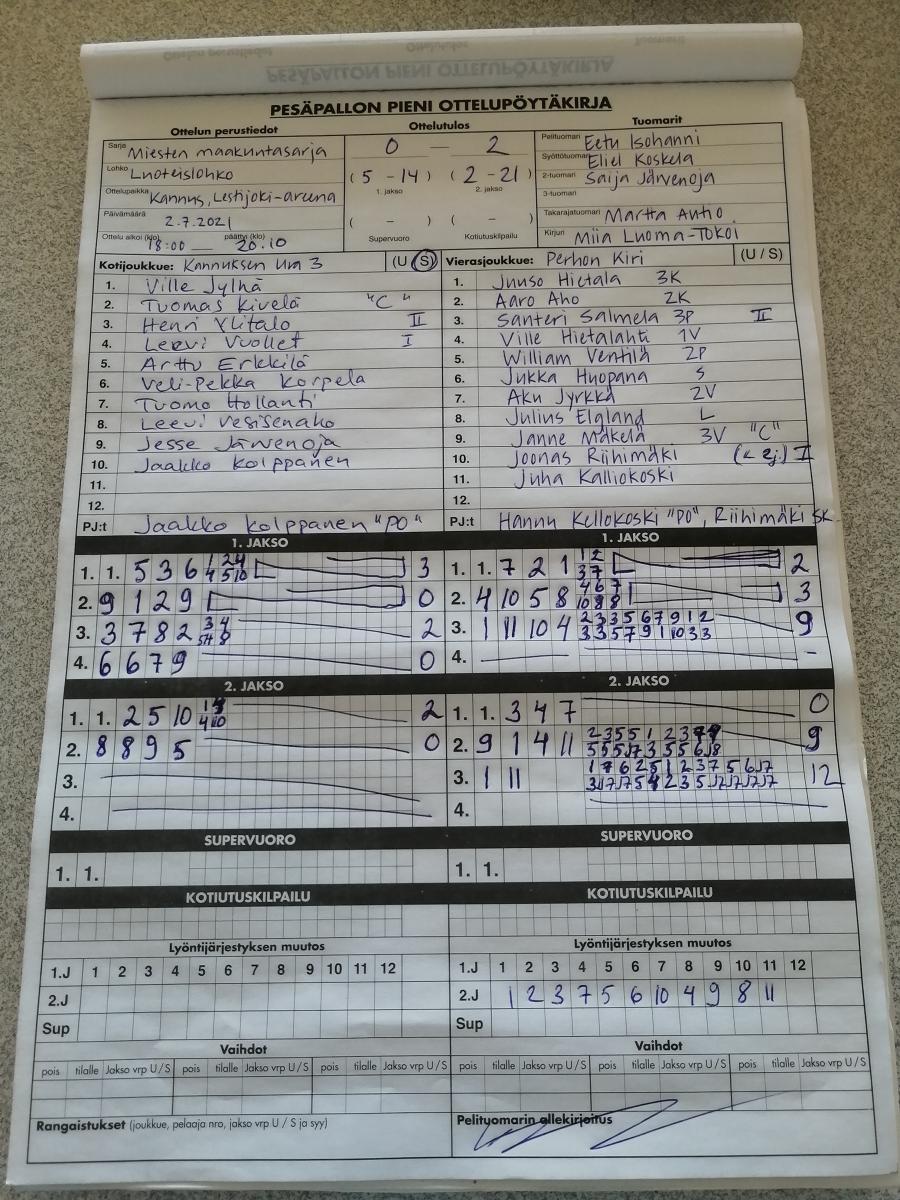 PESÄPALLON PIENI OTTELUPÖYTÄKIRJA
Ottelun perustiedot
Sarja Miesten maakuntasarja
Lohko Luoteislohko
Ottelupaikka Kannus, Lestijoki-areena
Päivämäärä 2.7.2021
Ottelu alkoi (klo) 18:00 — päättyi (klo) 20.10
Ottelutulos
0 — 2
(5 - 14) (2 - 21)
1. jakso 2. jakso
( - ) ( - )
Supervuoro Kotiutuskilpailu
Tuomarit
Pelituomari Eetu Isohanni
Syöttötuomari Eliel Koskela
2-tuomari Saija Järvenoja
3-tuomari
Takarajatuomari Martta Autio
Kirjuri Miia Luoma-Tokoi
Kotijoukkue: Kannuksen Ura 3 (U / S)
1. Ville Jylhä
2. Tuomas Kivelä "C"
3. Henri Ylitalo II
4. Leevi Vuollet I
5. Arttu Erkkilä
6. Veli-Pekka Korpela
7. Tuomo Hollanti
8. Leevi Vesisenaho
9. Jesse Järvenoja
10. Jaakko Kolppanen
11.
12.
PJ:t Jaakko Kolppanen "PO"
Vierasjoukkue: Perhon Kiri (U / S)
1. Juuso Hietala 3K
2. Aaro Aho 2K
3. Santeri Salmela 3P II
4. Ville Hietalahti 1V
5. William Ventilä 2P
6. Jukka Huopana S
7. Aku Jyrkkä 2V
8. Julius Elgland L
9. Janne Mäkelä 3V "C"
10. Joonas Riihimäki (< 2j.) I
11. Juha Kalliokoski
12.
PJ:t Hannu Kellokoski "PO", Riihimäki SK
1. JAKSO
1. 1. 5 3 6 3
2. 9 1 2 9 0
3. 3 7 8 2 2
4. 6 6 7 9 0
1. JAKSO
1. 1. 7 2 1 2
2. 4 10 5 8 3
3. 1 11 10 4 2 3 3 5 6 7 9 1 2 9
3 3 5 7 9 1 10 3 3
4. -
2. JAKSO
1. 1. 2 5 10 2
2. 8 8 9 5 0
3.
4.
2. JAKSO
1. 1. 3 4 7 0
2. 9 1 4 11 9
3. 1 11 12
4.
SUPERVUORO
1. 1.
SUPERVUORO
1. 1.
KOTIUTUSKILPAILU
KOTIUTUSKILPAILU
Lyöntijärjestyksen muutos
1.J 1 2 3 4 5 6 7 8 9 10 11 12
2.J
Sup
Lyöntijärjestyksen muutos
1.J 1 2 3 4 5 6 7 8 9 10 11 12
2.J 1 2 3 7 5 6 10 4 9 8 11
Sup
Vaihdot
pois tilalle Jakso vrp U / S pois tilalle Jakso vrp U / S pois tilalle Jakso vrp U / S
Vaihdot
pois tilalle Jakso vrp U / S pois tilalle Jakso vrp U / S pois tilalle Jakso vrp U / S
Rangaistukset (joukkue, pelaaja nro, jakso vrp U / S ja syy)
Pelituomarin allekirjoitus